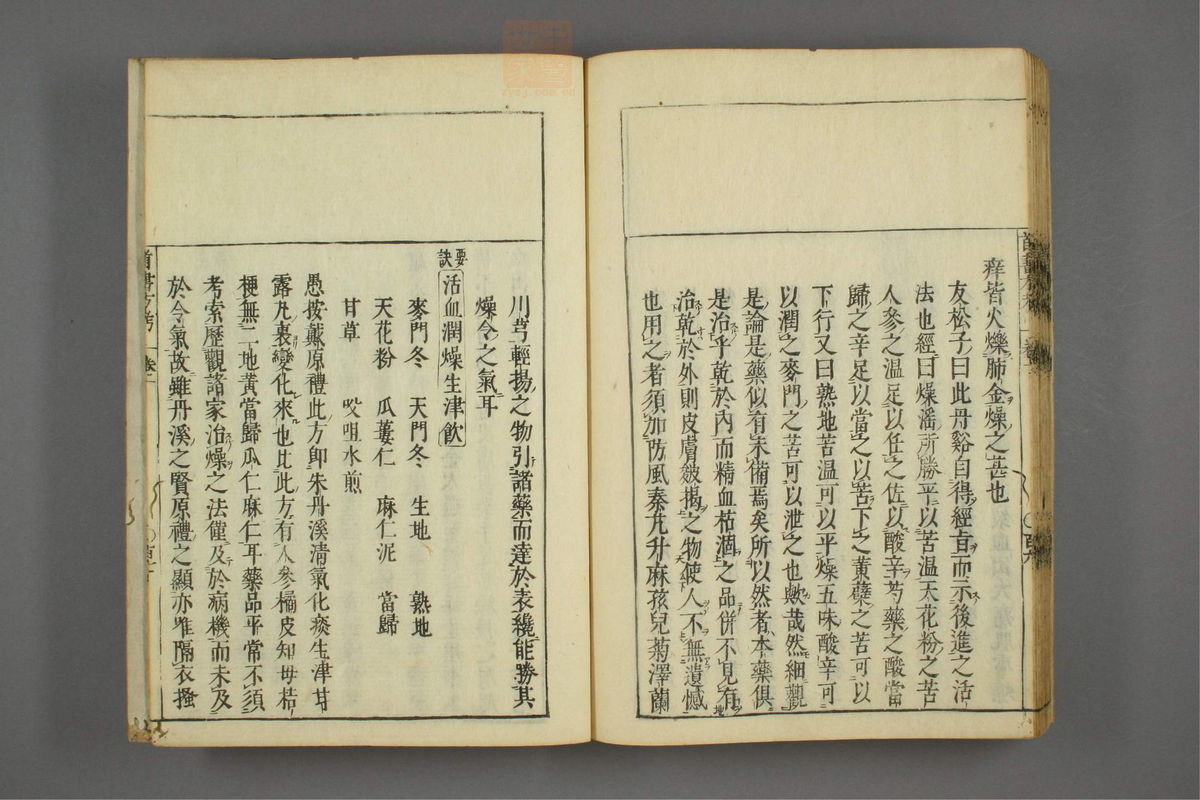 痒皆火爍肺金燥之甚也
友松子曰此丹谿曰得經旨而示後進之活
法也經曰燥滛所勝平以苦温天花粉之苦
人參之温足以任之佐以酸辛芍藥之酸當
歸之辛足以當之以苦下之黄蘗之苦可以
下行又曰熟地苦温可以平燥五味酸辛可
以潤之麥門之苦可以泄之也歟哉然細觀
是論是藥似有未備焉矣所以然者本藥俱
是治乎乾於内而精血枯涸之品併不見有
治乾於外則皮膚皴揭之物使人不無遺憾
也用之者須加防風秦艽升麻孩兒菊澤蘭
川芎輕揚之物引諸藥而達於表纔能勝其
燥令之氣耳
要訣 活血潤燥生津飲
麥門冬 天門冬 生地 熟地
天花粉 瓜蔞仁 麻仁泥 當歸
甘草 㕮咀水煎
愚按戴原禮此方卽朱丹溪清氣化痰生津甘
露丸裏變化來也比此方有人參橘皮知母桔
梗無二地黄當歸瓜仁麻仁耳藥品平常不須
考索歷觀諸家治燥之法僅及於病機而未及
於令氣故雖丹溪之賢原禮之顯亦唯隔衣搔